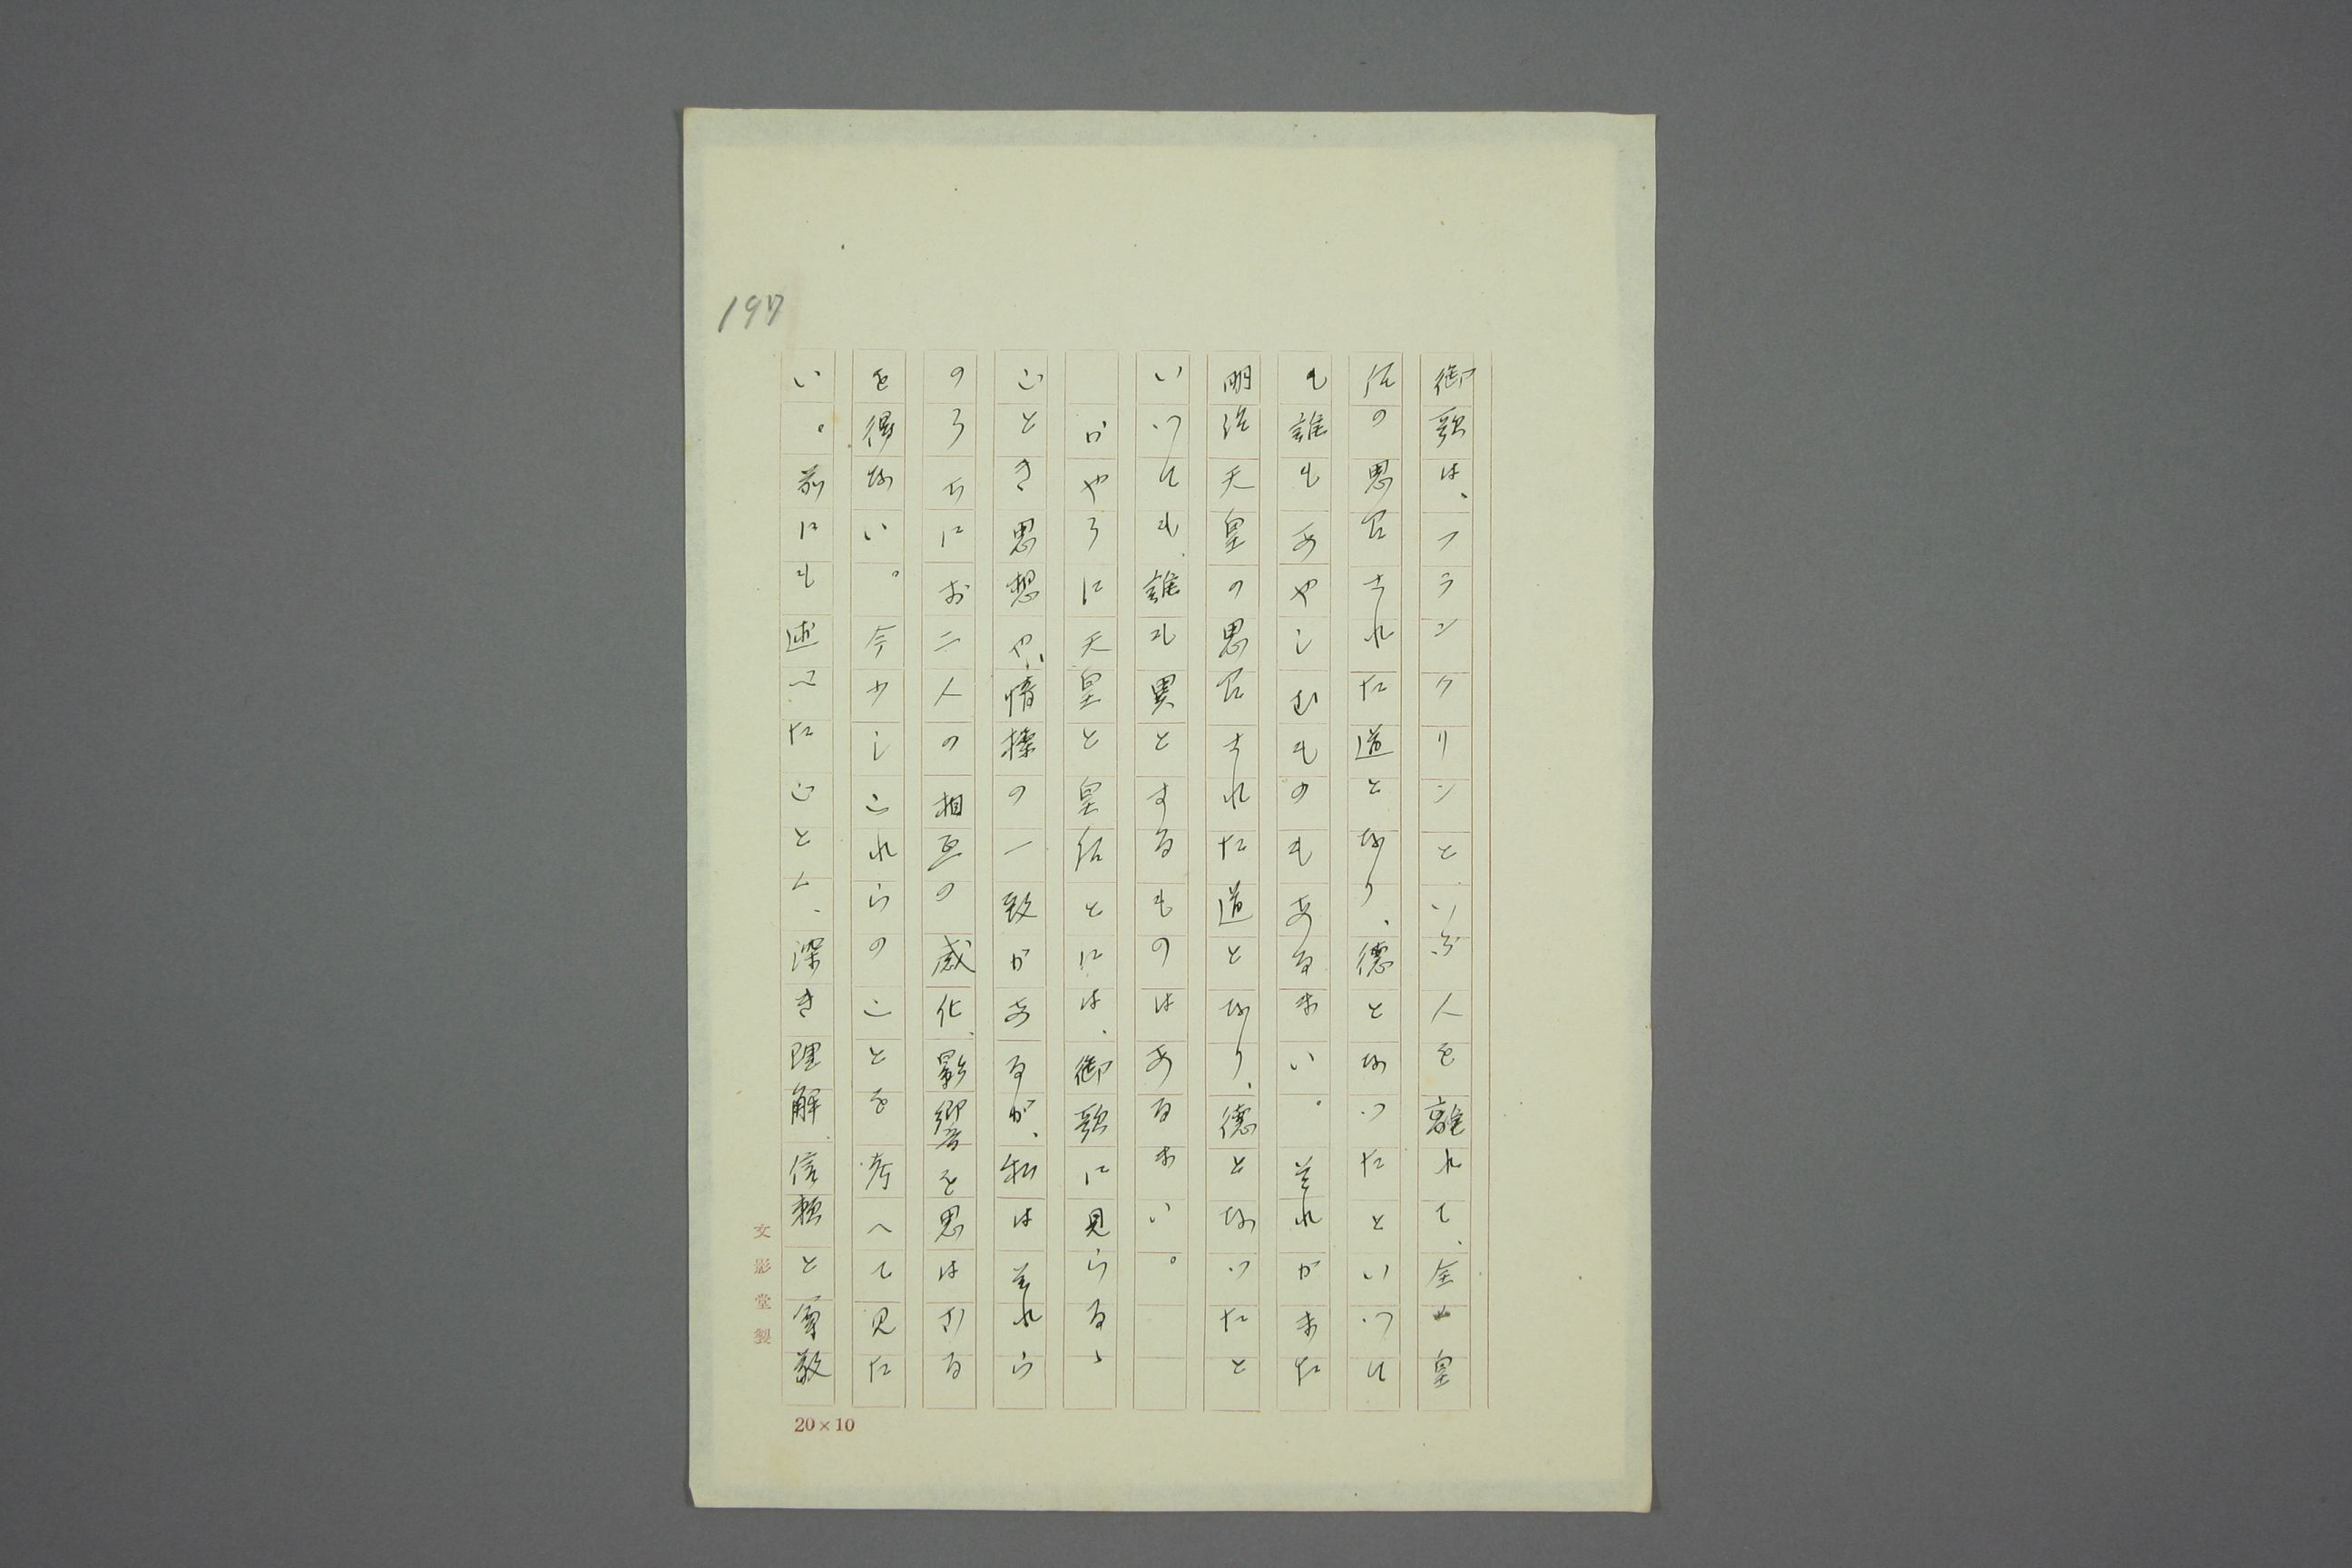 197
御歌は、フランクリンといふ人を離れて、全く皇
后の思召された道となり、徳となつたといつて
も誰もあやしむものもあるまい。それがまた
明治天皇の思召された道となり、徳となつたと
いつても、誰も異とするものはあるまい。
かやうに天皇と皇后とには、御歌に見らるゝ
ごとき思想や、情操の一致があるが、私はそれら
のうちにお二人の相互の感化、影響を思はざる
を得ない。今少しこれらのことを考へて見た
い。前にも述べたごとく、深き理解、信頼と尊敬
文影堂製
20×10